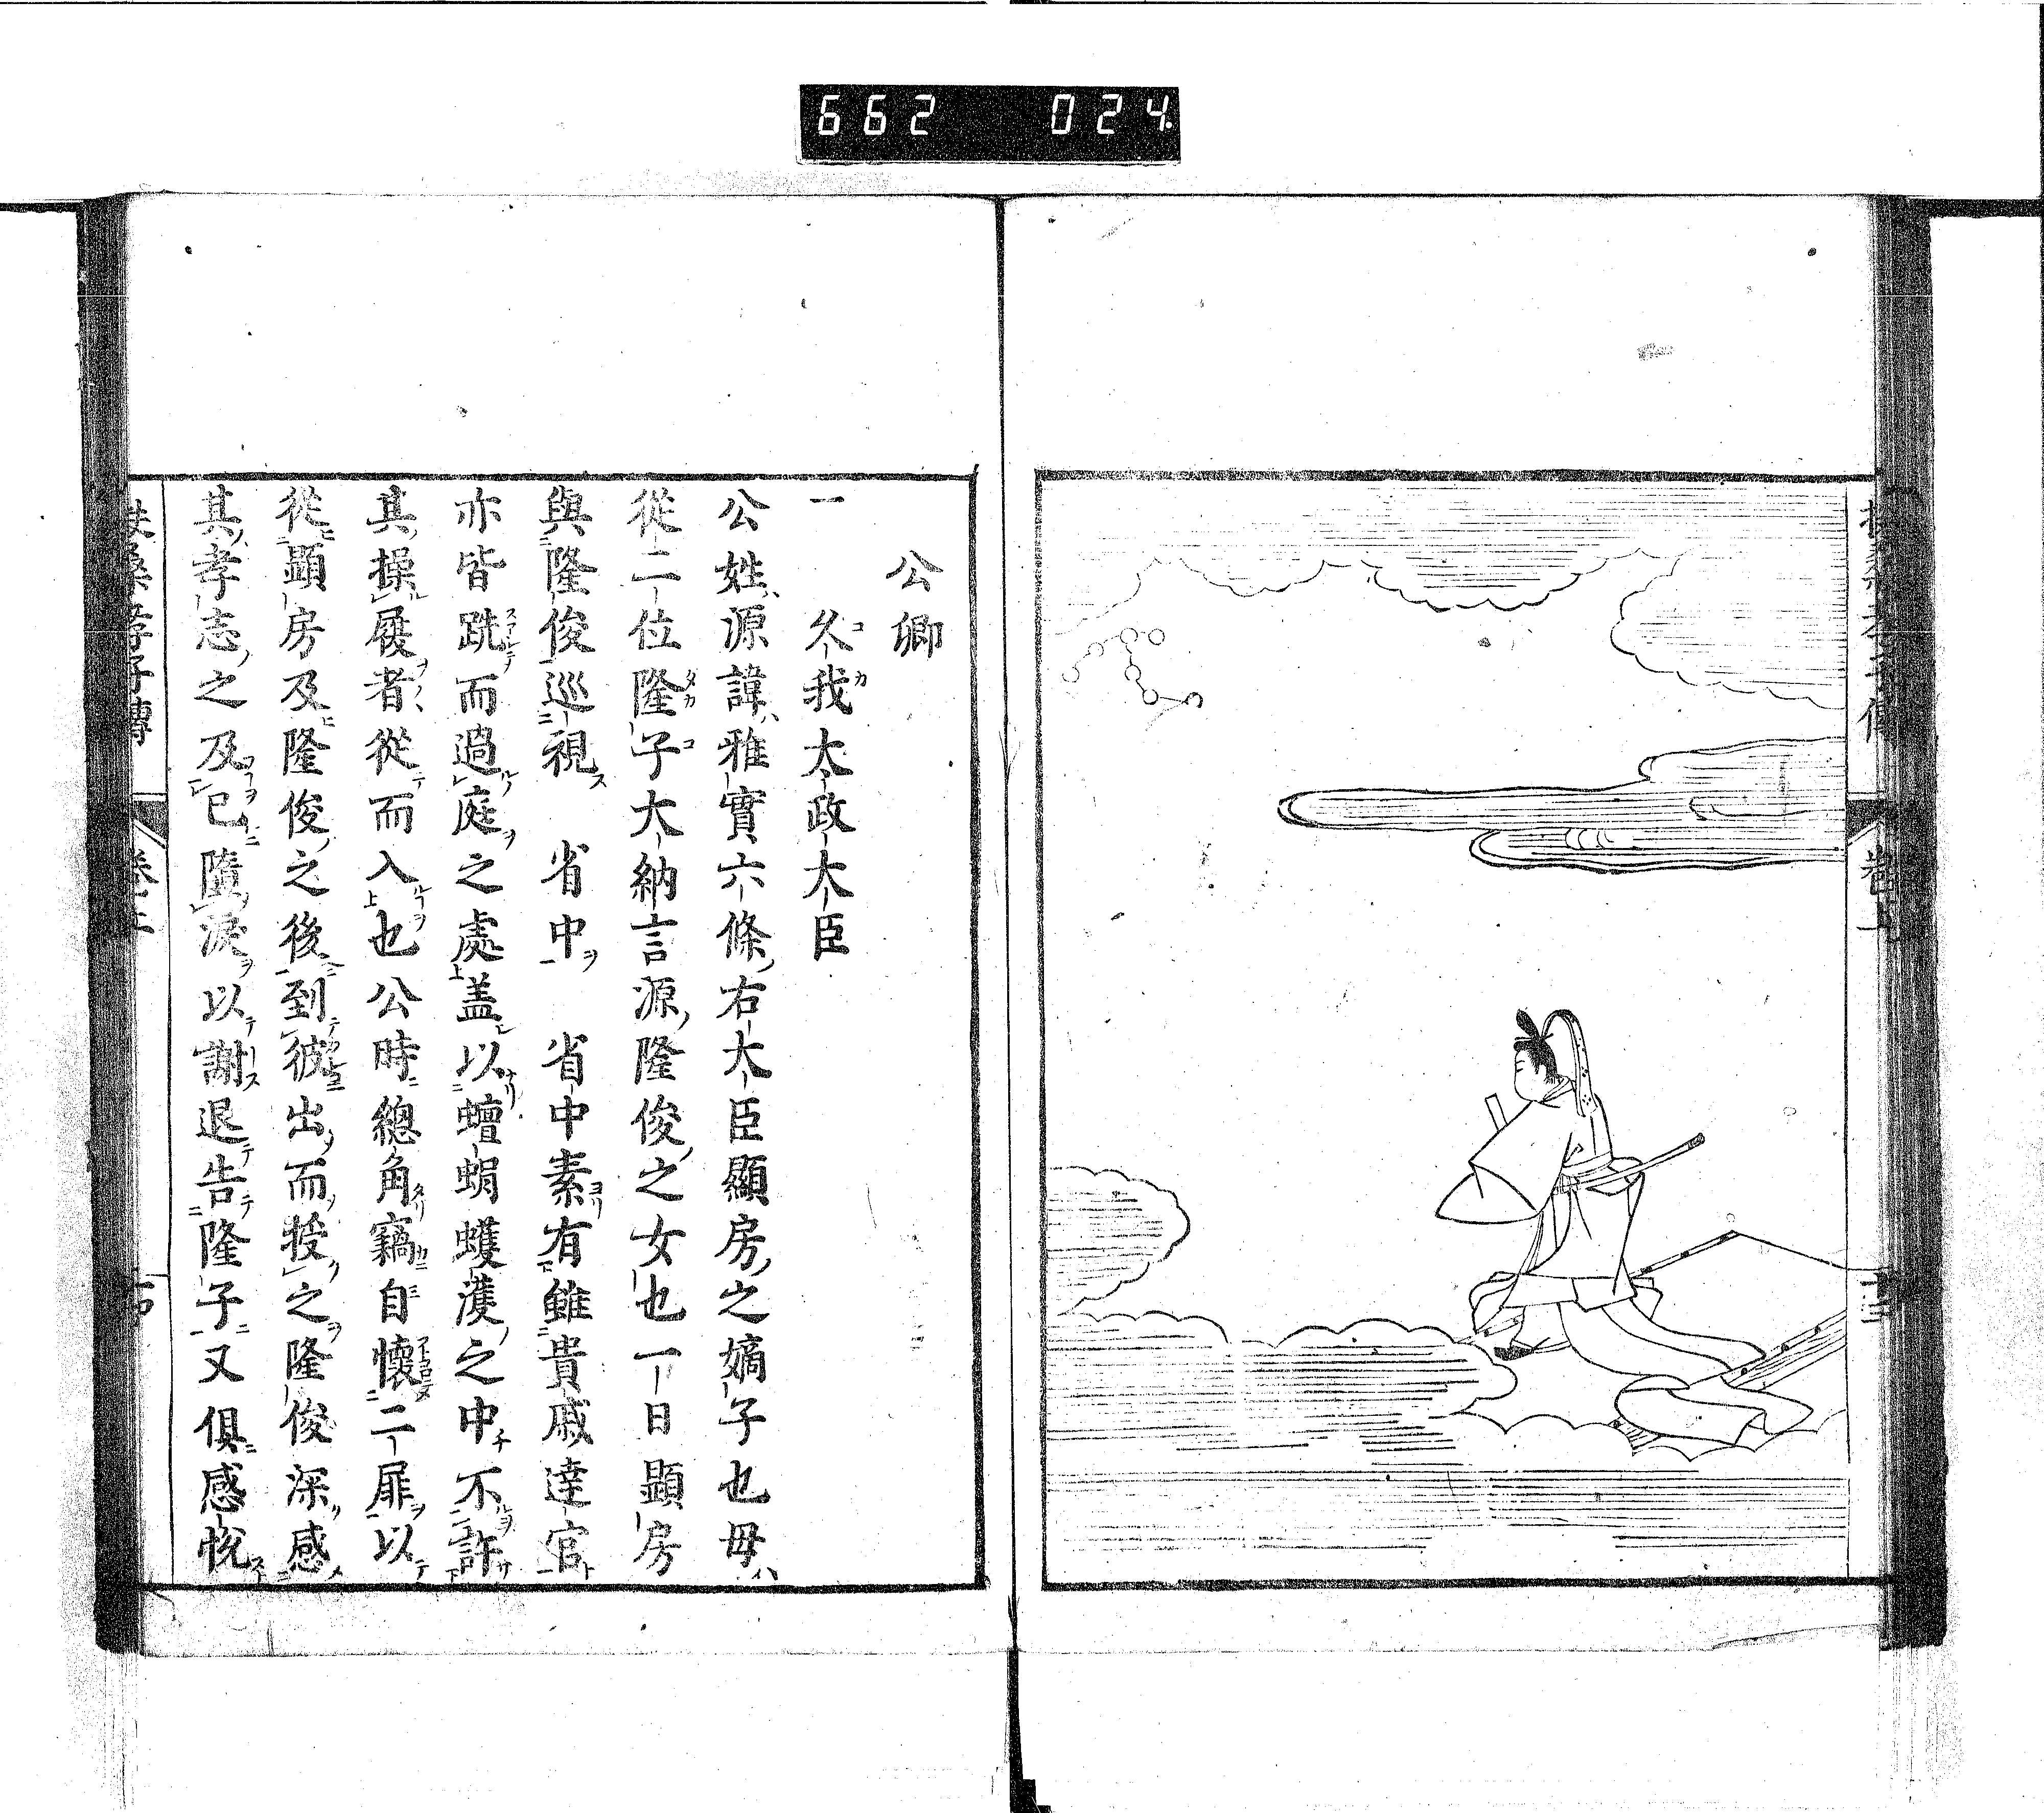 662 024
公卿
一 久我太政大臣
公姓源諱雅實六條右大臣顯房之嫡子也母
從二位隆子大納言源隆俊之女也一日顯房
與隆俊巡視 省中 省中素有雖貴戚達官
亦皆跣而過庭之處盖以蟺蜎蠖濩之中不許
其操屐者從而入也公時總角竊自懷二扉以
從顯房及隆俊之後到彼出而授之隆俊深感
其孝志之及已墮淚以謝退告隆子又俱感悅